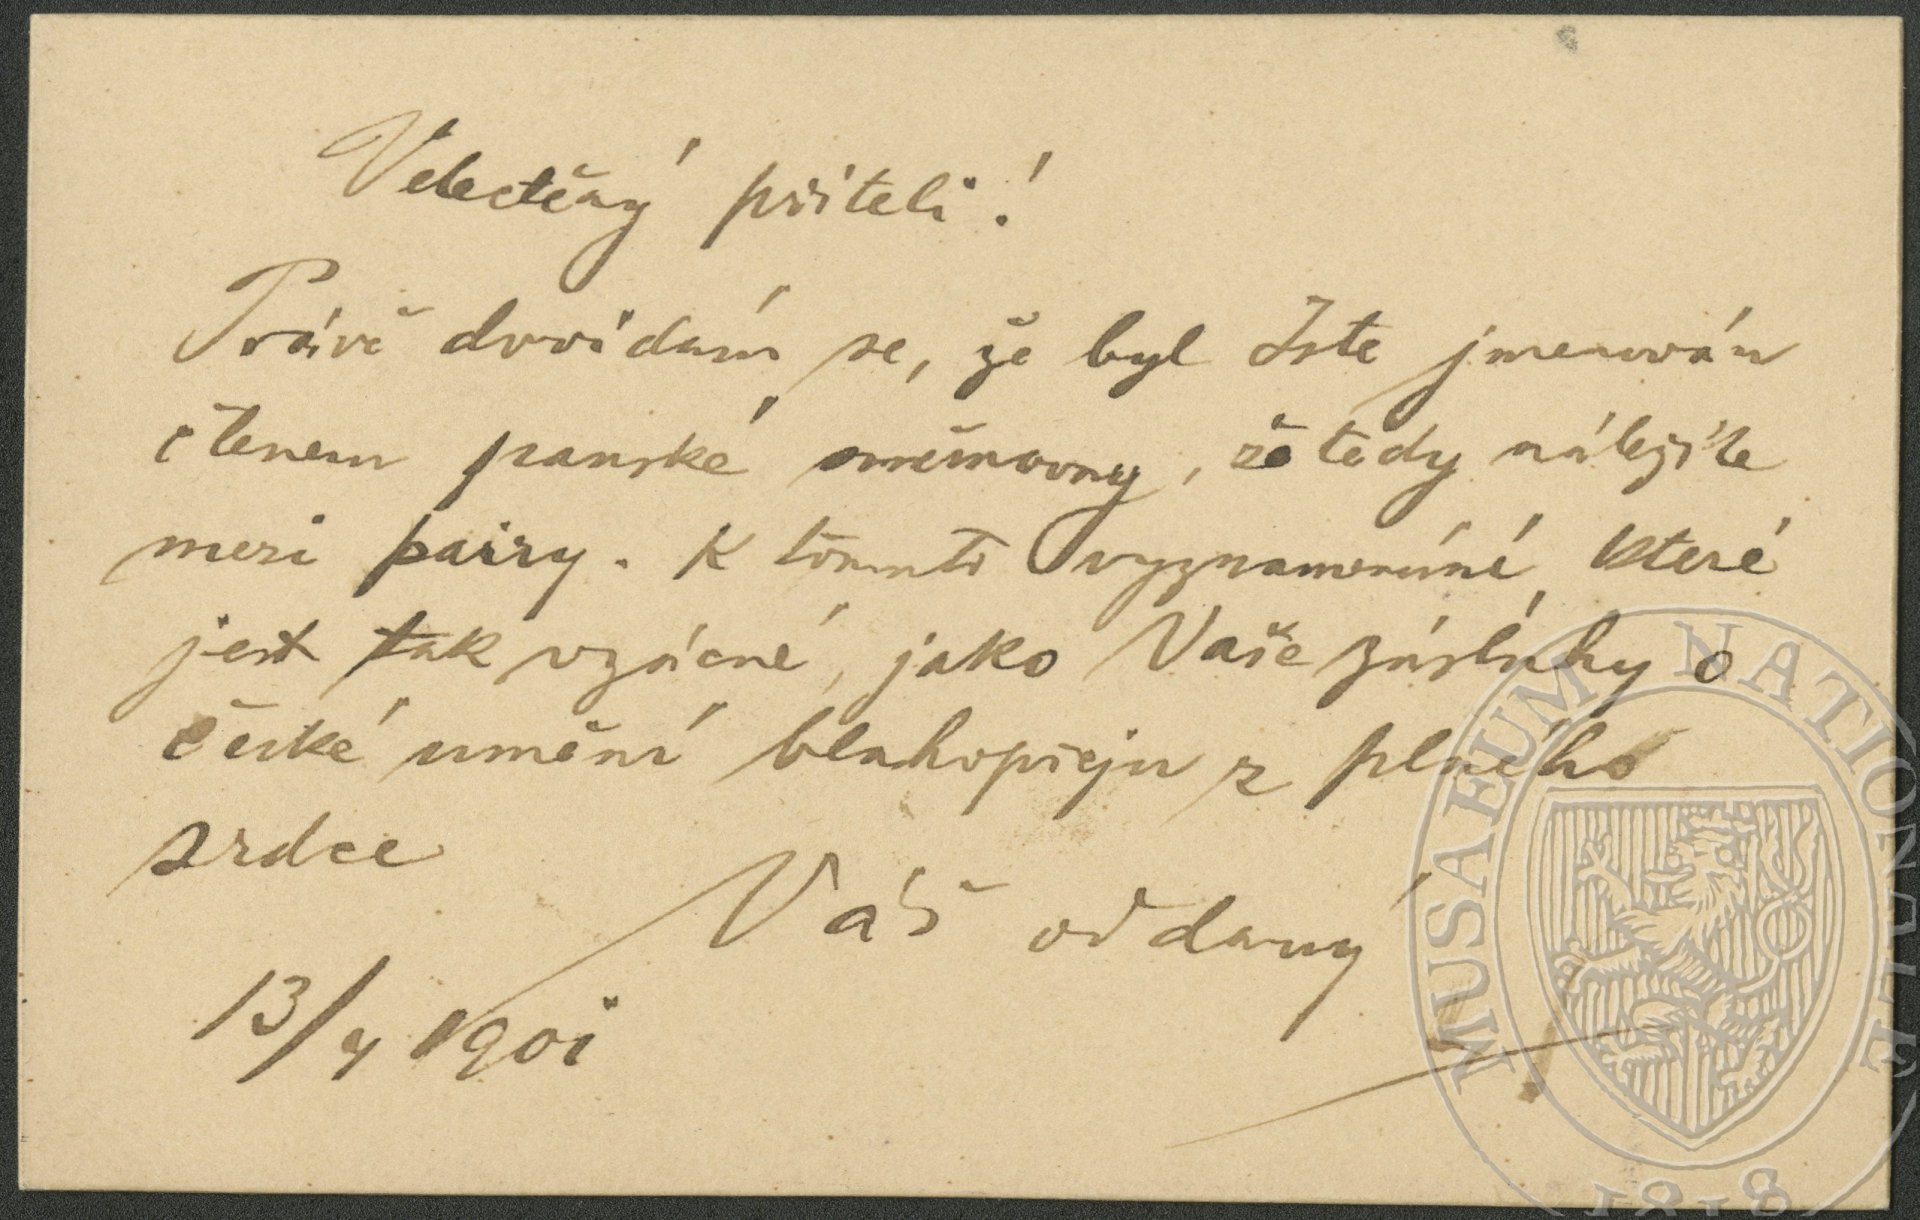 Velectěný příteli!
Právě dovídám se, že byl Jste jmenován
členem panské sněmovny, že tedy náležíte
mezi pairy. K tomuto vyznamenání, které
jest tak vzácné, jako Vaše zásluhy o
české umění blahopřeju z plného
srdce
Váš oddaný
13/4 1901
MUSAEUM NATIONALE
1818